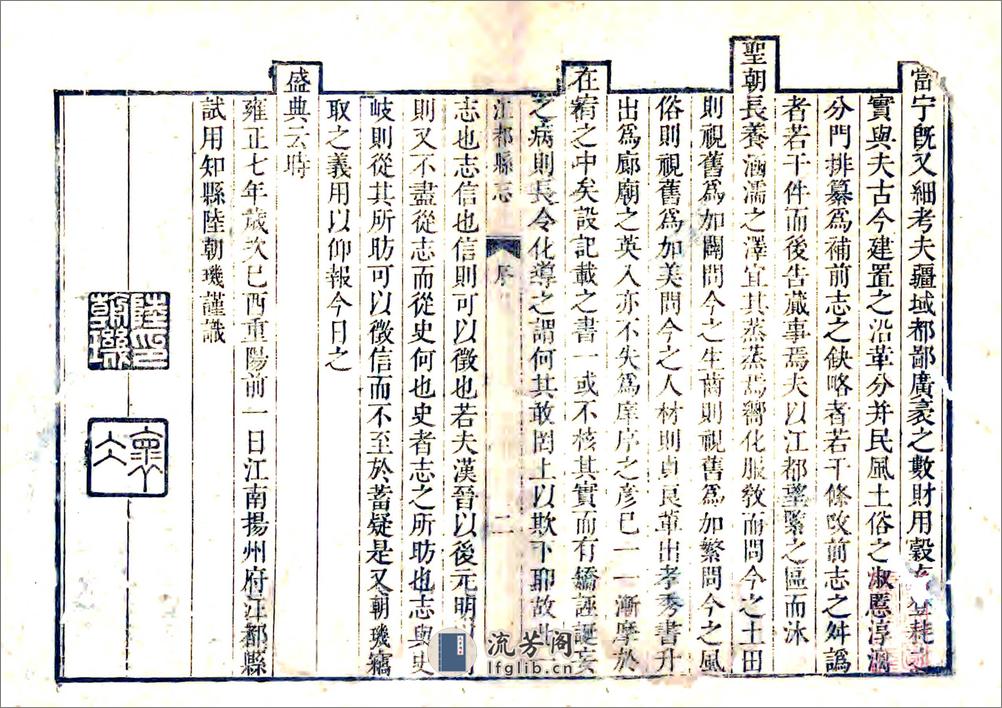 當宁旣又細考夫疆域都鄙廣袤之數財用穀
實與夫古今建置之沿革分并民風土俗之淑慝淳漓
分門排纂爲補前志之缺略者若干條改前志之舛譌
者若干件而後告蕆事焉夫以江都壑緊之區而沐
聖朝長養涵濡之澤宜其蒸蒸焉嚮化服敎而問今之土田
則視舊爲加闢問今之生齒則視舊爲加繁問今之風
俗則視舊爲加美問今之人材則貞良輩出孝秀書升
出爲廊廟之英入亦不失爲庠序之彥已一一漸摩於
在宥之中矣設記載之書一或不核其實而有矯誣誕妄
之病則長令化導之謂何其敢罔上以欺下耶故
江都縣志 序 二
志也志信也信則可以徵也若夫漢晉以後元明
則又不盡從志而從史何也史者志之所昉也志與史
岐則從其所昉可以徵信而不至於蓄疑是又朝璣竊
取之義用以仰報今日之
盛典云時
雍正七年歲次己酉重陽前一日江南揚州府江都縣
試用知縣陸朝璣謹識
陸印朝璣
流芳阁
lfglib.cn